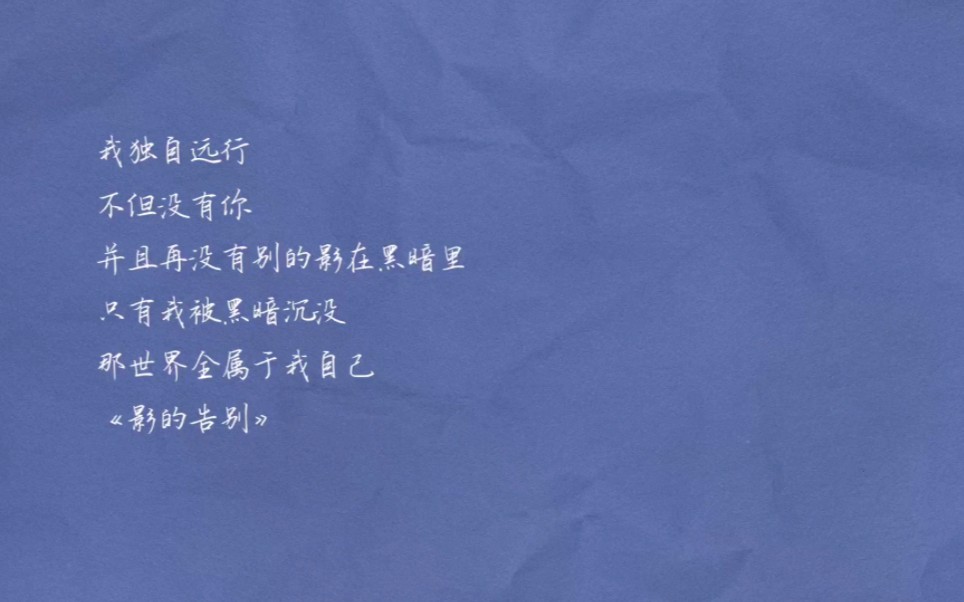 我独自远行
不但没有你
并且再没有别的影在黑暗里
只有我被黑暗沉没
那世界全属于我自己
《影的告别》